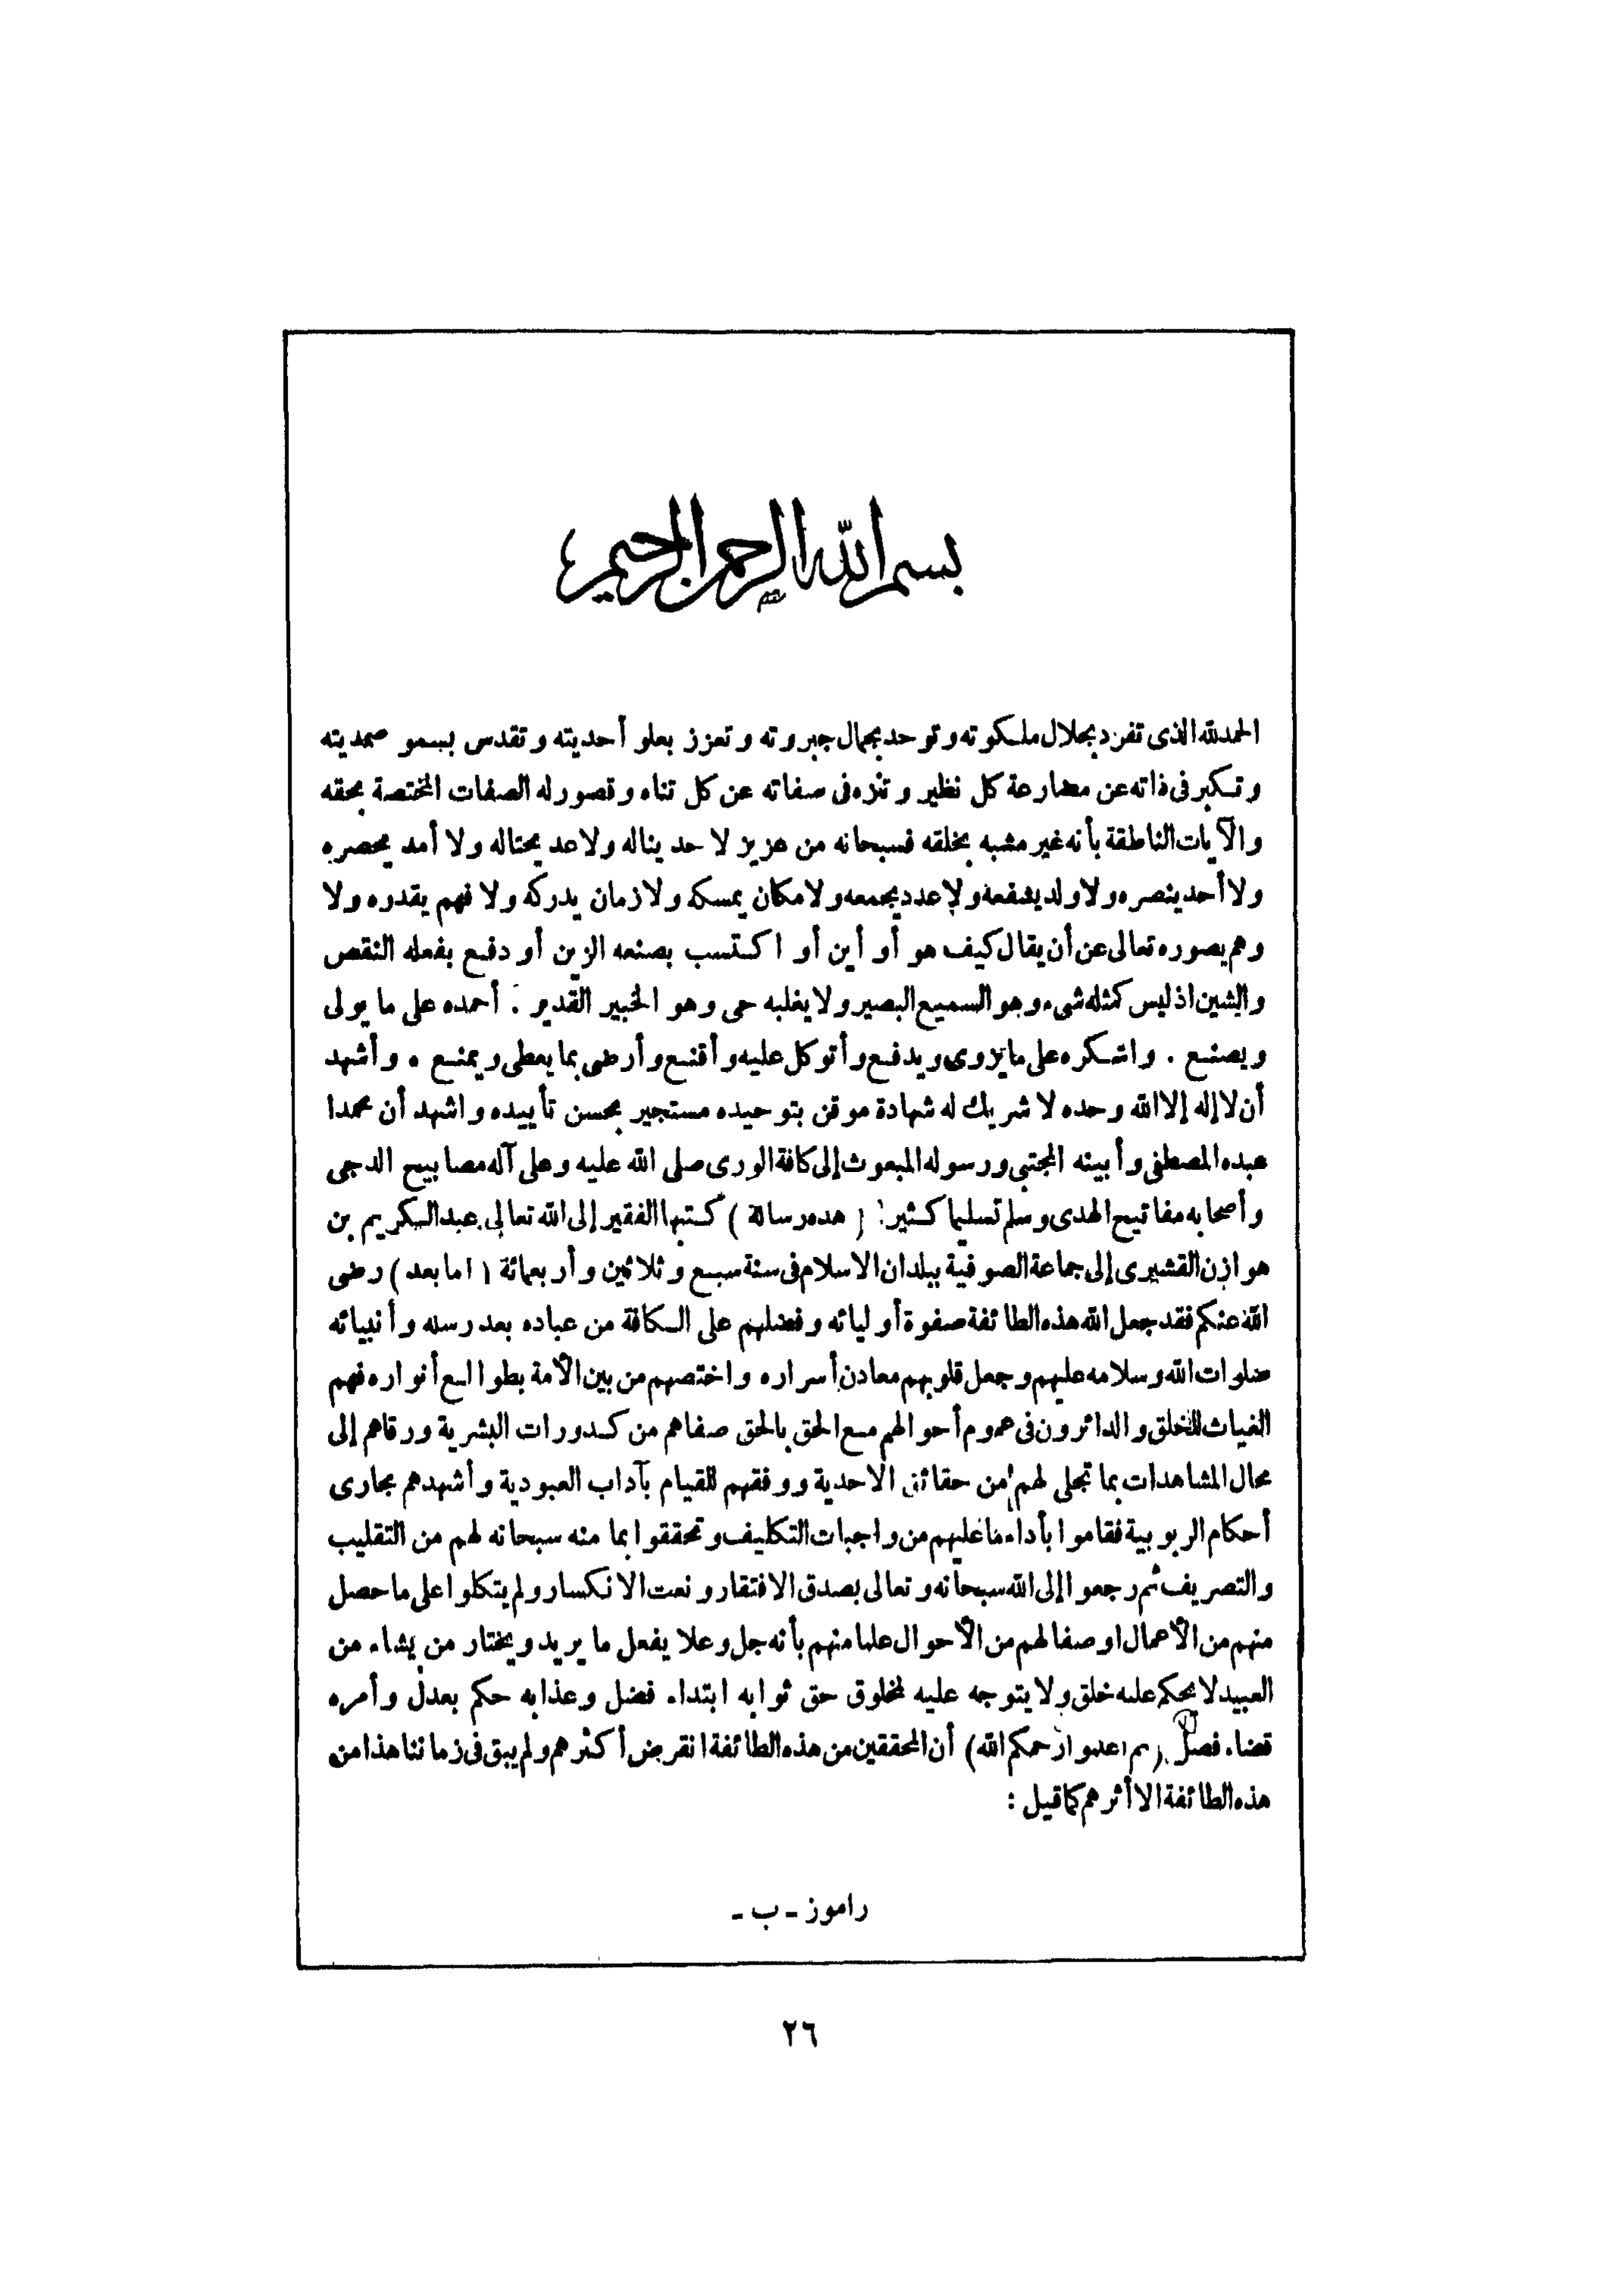 بسم الله الرحمن الرحيم
الحمدلله الذى تفرد بجلال ملكوته وتوحد بجمال جبروته وتعزز بعلو أحديته وتقدس بسمو صمديته
وتكبر فى ذاته عن مضارعة كل نظير وتنزه فى صفاته عن كل تناه وقصور له الصفات المختصة بحقه
والآيات الناطقة بأنه غير مشبه بخلقه فسبحانه من عزيز لا حد يناله ولا عد يحتاله ولا أمد يحصره
ولا أحد ينصره ولا ولد يشفعه ولا عدد يجمعه ولا مكان يمسكه ولا زمان يدركه ولا فهم يقدره ولا
وهم يصوره تعالى عن أن يقال كيف هو أو أين أو اكتسب بصنعه الزين أو دفع بفعله النقص
والشين اذ ليس كمثله شىء وهو السميع البصير ولا يغلبه حى وهو الخبير القدير . أحمده على ما يولى
ويصنع . واشكره على ما يزوى ويدفع وأتوكل عليه وأقنع وأرضى بما يعطى ويمنع . وأشهد
أن لا إله إلا الله وحده لا شريك له شهادة موقن بتوحيده مستجير بحسن تأييده واشهد أن محمدا
عبده المصطفى وأبينه المجتبى ورسوله المبعوث إلى كافة الورى صلى الله عليه وعلى آله مصابيح الدجى
وأصحابه مفاتيح الهدى وسلم تسليما كثيرا ( هده رسالة ) كتبها الفقير إلى الله تعالى عبدالكريم بن
هوازن القشيرى إلى جماعة الصوفية ببلدان الاسلام فى سنة سبع وثلاثين وأربعمائة ( اما بعد ) رضى
الله عنكم فقد جعل الله هذه الطائفة صفوة أوليائه وفضلهم على الكافة من عباده بعد رسله وأنبيائه
صلوات الله وسلامه عليهم وجعل قلوبهم معادن أسراره واختصهم من بين الأمة بطوالع أنواره فهم
الغياث للخلق والدائرون فى عموم أحوالهم مع الحق بالحق صفاهم من كدورات البشرية ورقاهم إلى
محال المشاهدات بما تجلى لهم من حقائق الاحدية ووفقهم للقيام بآداب العبودية وأشهدهم مجارى
أحكام الربوبية فقاموا بأداء ما عليهم من واجبات التكليف وتحققوا بما منه سبحانه لهم من التقليب
والتصريف ثم رجعوا إلى الله سبحانه وتعالى بصدق الافتقار ونعت الانكسار ولم يتكلوا على ما حصل
منهم من الأعمال او صفا لهم من الأحوال علما منهم بأنه جل وعلا يفعل ما يريد ويختار من يشاء من
العبيد لا يحكم عليه خلق ولا يتوجه عليه لمخلوق حق ثوابه ابتداء فضل وعذابه حكم بعدل وأمره
قضاء فصل ( ثم اعلموا رحمكم الله ) أن المحققين من هذه الطائفة انقرض أكثرهم ولم يبق فى زماننا هذا من
هذه الطائفة الا أثرهم كما قيل :
راموز - ب -
٢٦